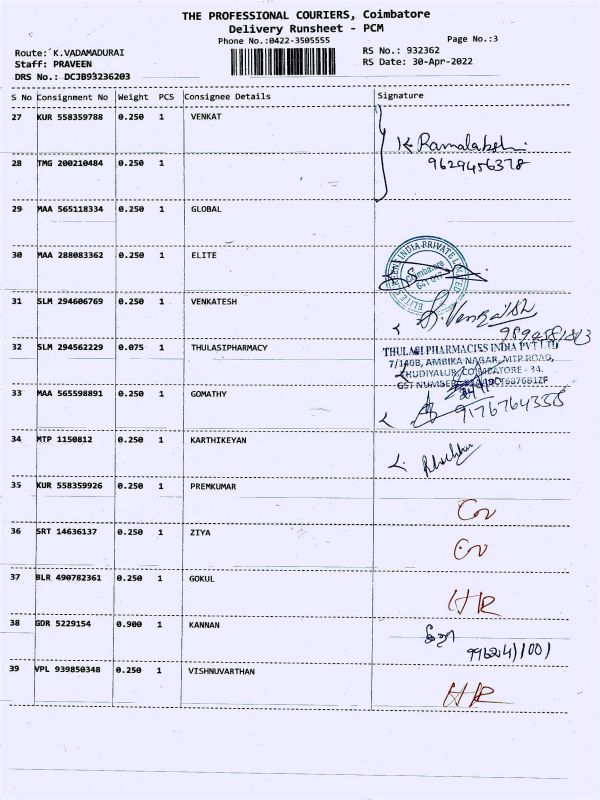 THE PROFESSIONAL COURIERS, Coimbatore
Delivery Runsheet - PCM
Phone No.:0422-3505555
Page No.:3
Route: K.VADAMADURAI
Staff: PRAVEEN
DRS No.: DCJB93236203
RS No.: 932362
RS Date: 30-Apr-2022
S No Consignment No Weight PCS Consignee Details Signature
27 KUR 558359788 0.250 1 VENKAT
K Ramalakshmi
9629456378
28 TMG 200210484 0.250 1
29 MAA 565118334 0.250 1 GLOBAL
30 MAA 288083362 0.250 1 ELITE
INDIA PRIVATE
Coimbatore
641 017
31 SLM 294606769 0.250 1 VENKATESH
32 SLM 294562229 0.075 1 THULASIPHARMACY
THULASI PHARMACIES INDIA PVT LTD
7/140B, AMBIKA NAGAR, MTP ROAD,
THUDIYALUR, COIMBATORE - 34.
GST NUMBER
33 MAA 565598891 0.250 1 GOMATHY
9176764358
34 MTP 1150812 0.250 1 KARTHIKEYAN
35 KUR 558359926 0.250 1 PREMKUMAR
36 SRT 14636137 0.250 1 ZIYA
37 BLR 490782361 0.250 1 GOKUL
HR
38 GDR 5229154 0.900 1 KANNAN
39 VPL 939850348 0.250 1 VISHNUVARTHAN
HR